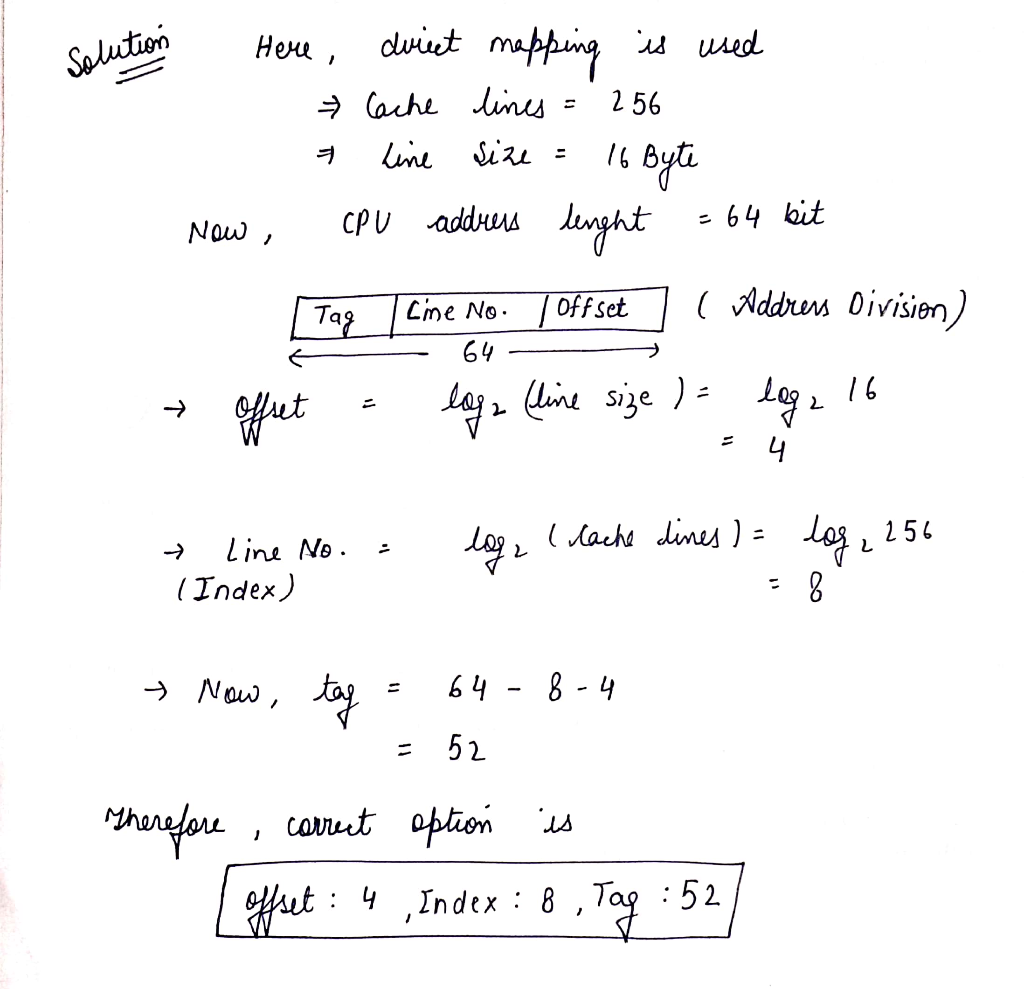 Solution Here, direct mapping is used
⇒ Cache lines = 256
⇒ Line Size = 16 Byte
Now, CPU address lenght = 64 bit
Tag | Line No. | Offset ( Address Division)
64
→ offset = log₂ (line size) = log₂ 16
= 4
→ Line No. = log₂ (Cache lines) = log₂ 256
(Index) = 8
→ Now, tag = 64 - 8 - 4
= 52
Therefore, correct option is
offset : 4 , Index : 8 , Tag : 52